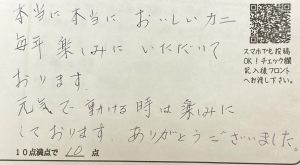 本当に本当に おいしいカニ
毎年 楽しみに いただいて
おります。
元気で 動ける時は 楽しみに
しております。ありがとうございました。
10点満点で 10 点
スマホでも投稿
OK!チェック欄
記入後フロント
へお渡し下さい。